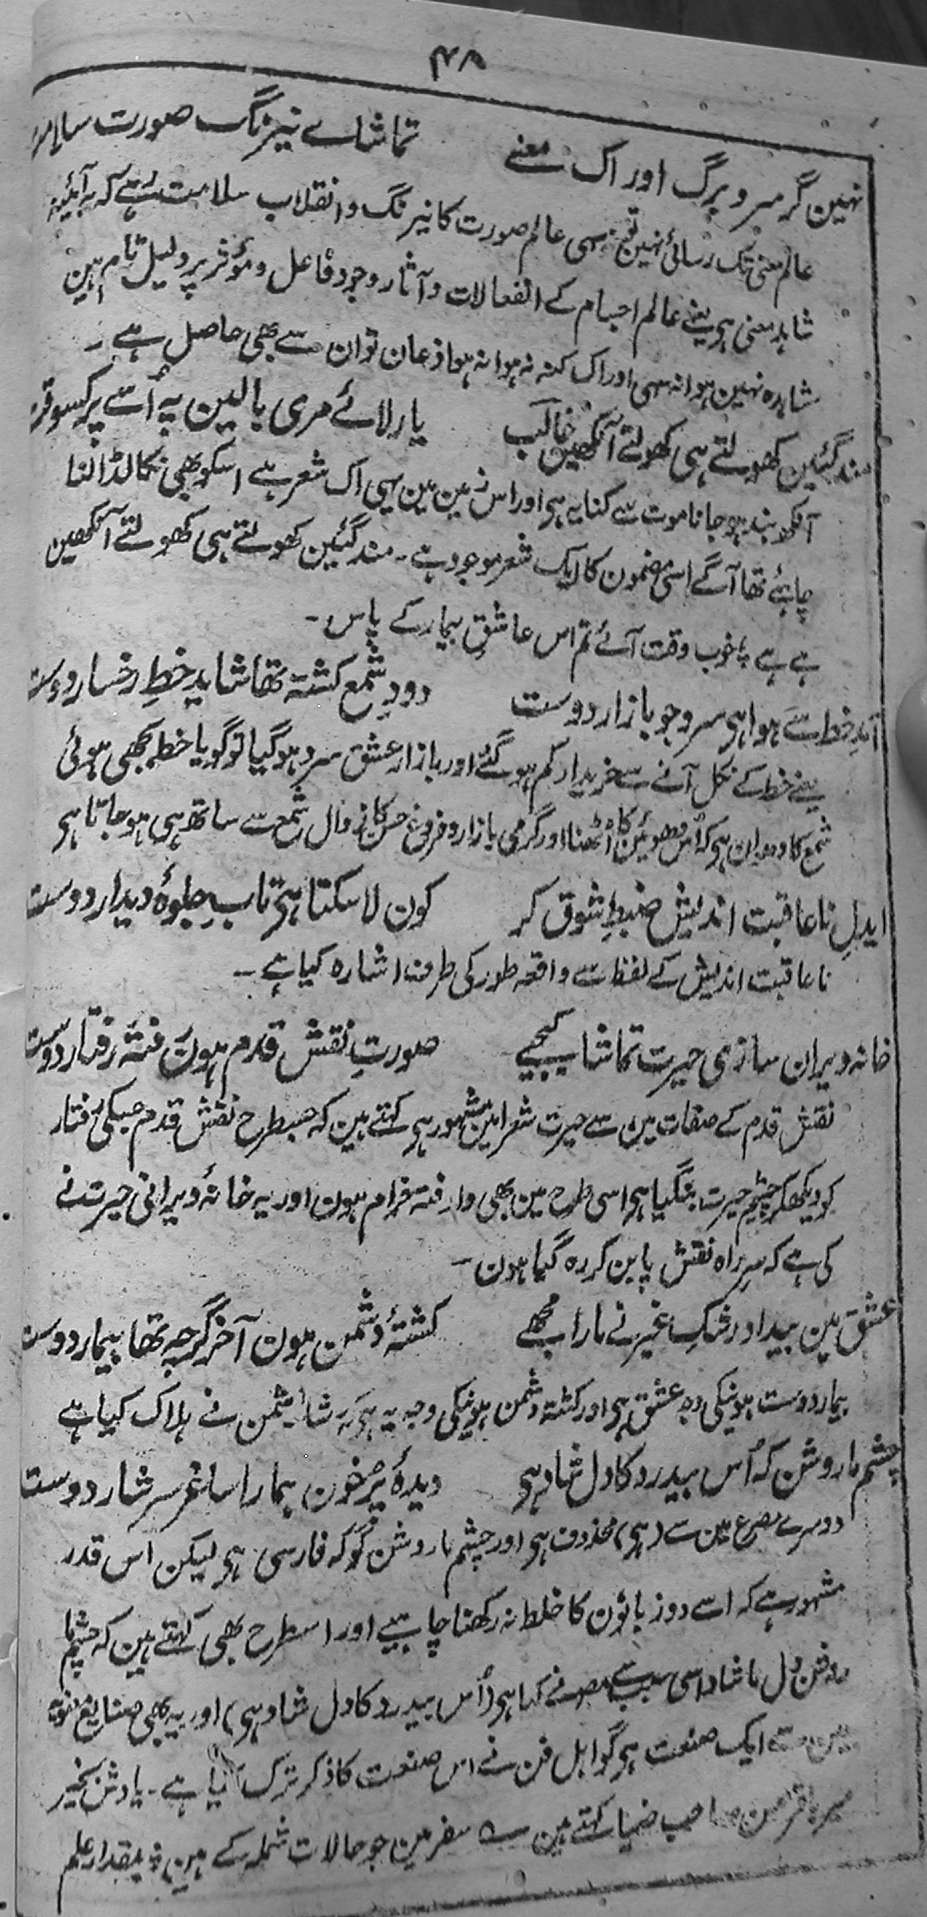 ۴۸
نہین گر سر و برگ ادراک معنے تماشاے نیرنگ صورت سلامت
عالم معنی تک رسائی نہین تو نہ سہی عالم صورت کا نیرنگ و انقلاب سلامت رہے کہ یہ آئینہ
شاہد معنی ہو یعنے عالم اجسام کے انفعالات و آثار وجود فاعل و مؤثر پر دلیل تام ہین
مشاہدہ نہین ہوا نہ سہی ادراک کنہ نہ ہوا نہ ہوا ذعان تو ان سے بھی حاصل ہے ۔
مند گئین کھولتے ہی کھولتے آنکھین غالب یار لائے مری بالین پہ اُسے پر کسوقت
آنکھ بند ہو جانا موت سے کنایہ ہو اور اس زمین مین یہی اک شعر ہے اسکو بھی نکالڈالنا
چاہئے تھا آگے اسی مضمون کا ایک شعر موجود ہے ۔ مند گئین کھولتے ہی کھولتے آنکھین
ہے ہے ؛ خوب وقت آئے تم اس عاشق بیمار کے پاس ۔
آمدِ خط سے ہوا ہی سرد جو بازار دوست دودِ شمع کشتہ تھا شاید خطِ رخسار دوست
یعنے خط کے نکل آنے سے خریدار کم ہو گئے اور بازار عشق سرد ہو گیا تو گویا خط بجھی ہوئی
شمع کا دھوان ہو کہ اُس دھوئین کا اُٹھنا اور گرمی بازار و فروغ حسن کا زوال شمع سے ساتھ ہی ہو جاتا ہو
ایدلِ ناعاقبت اندیش ضبطِ شوق کر کون لا سکتا ہی تابِ جلوۂ دیدار دوست
ناعاقبت اندیش کے لفظ سے واقعہ طور کی طرف اشارہ کیا ہے ۔
خانہ ویران سازی حیرت تماشا کیجیے صورتِ نقش قدم ہون رفتۂ رفتار دوست
نقش قدم کے صفات مین سے حیرت شعرا مین مشہور ہی کہتے ہین کہ جسطرح نقش قدم جسکی رفتار
کو دیکھکر چشم حیرت بنگیا ہو اسی طرح مین بھی وارفتہ خرام ہون اور یہ خانۂ ویرانی حیرت نے
کی ہے کہ سر راہ نقش پا بن کر رہ گیا ہون ۔
عشق مین بیداد رشکِ غیر نے مارا مجھے کشتۂ دشمن ہون آخر گرچہ تھا بیمار دوست
بیمار دوست ہونیکی وجہ عشق ہی اور کشتہ دشمن ہونیکی وجہ یہ ہی کہ دشمن نے ہلاک کیا ہے
چشم ما روشن کہ اُس بیدرد کا دل شاد ہی دیدۂ پر خون ہمارا ساغر سرشار دوست
دوسرے مصرع مین سے (ہی) محذوف ہو اور چشم ما روشن گو کہ فارسی ہو لیکن اس قدر
مشہور ہے کہ اسے دو زبانون کا خلط نہ رکھنا چاہیے اور اسطرح بھی کہتے ہین کہ چشم ما
روشن دل ما شاد اسی سبب سے مصنف نے کہا ہو (اُس بیدرد کا دل شاد ہی) اور یہ بھی صنایع معنویہ
مین سے ایک صنعت ہو گو اہل فن نے اس صنعت کا ذکر ترک کیا ہے ۔ یادش بخیر
میر باقر حسن صاحب ضیا کہتے ہین ؎ سفر مین جو حالات شملہ کے ہین ؛ بمقدار علم